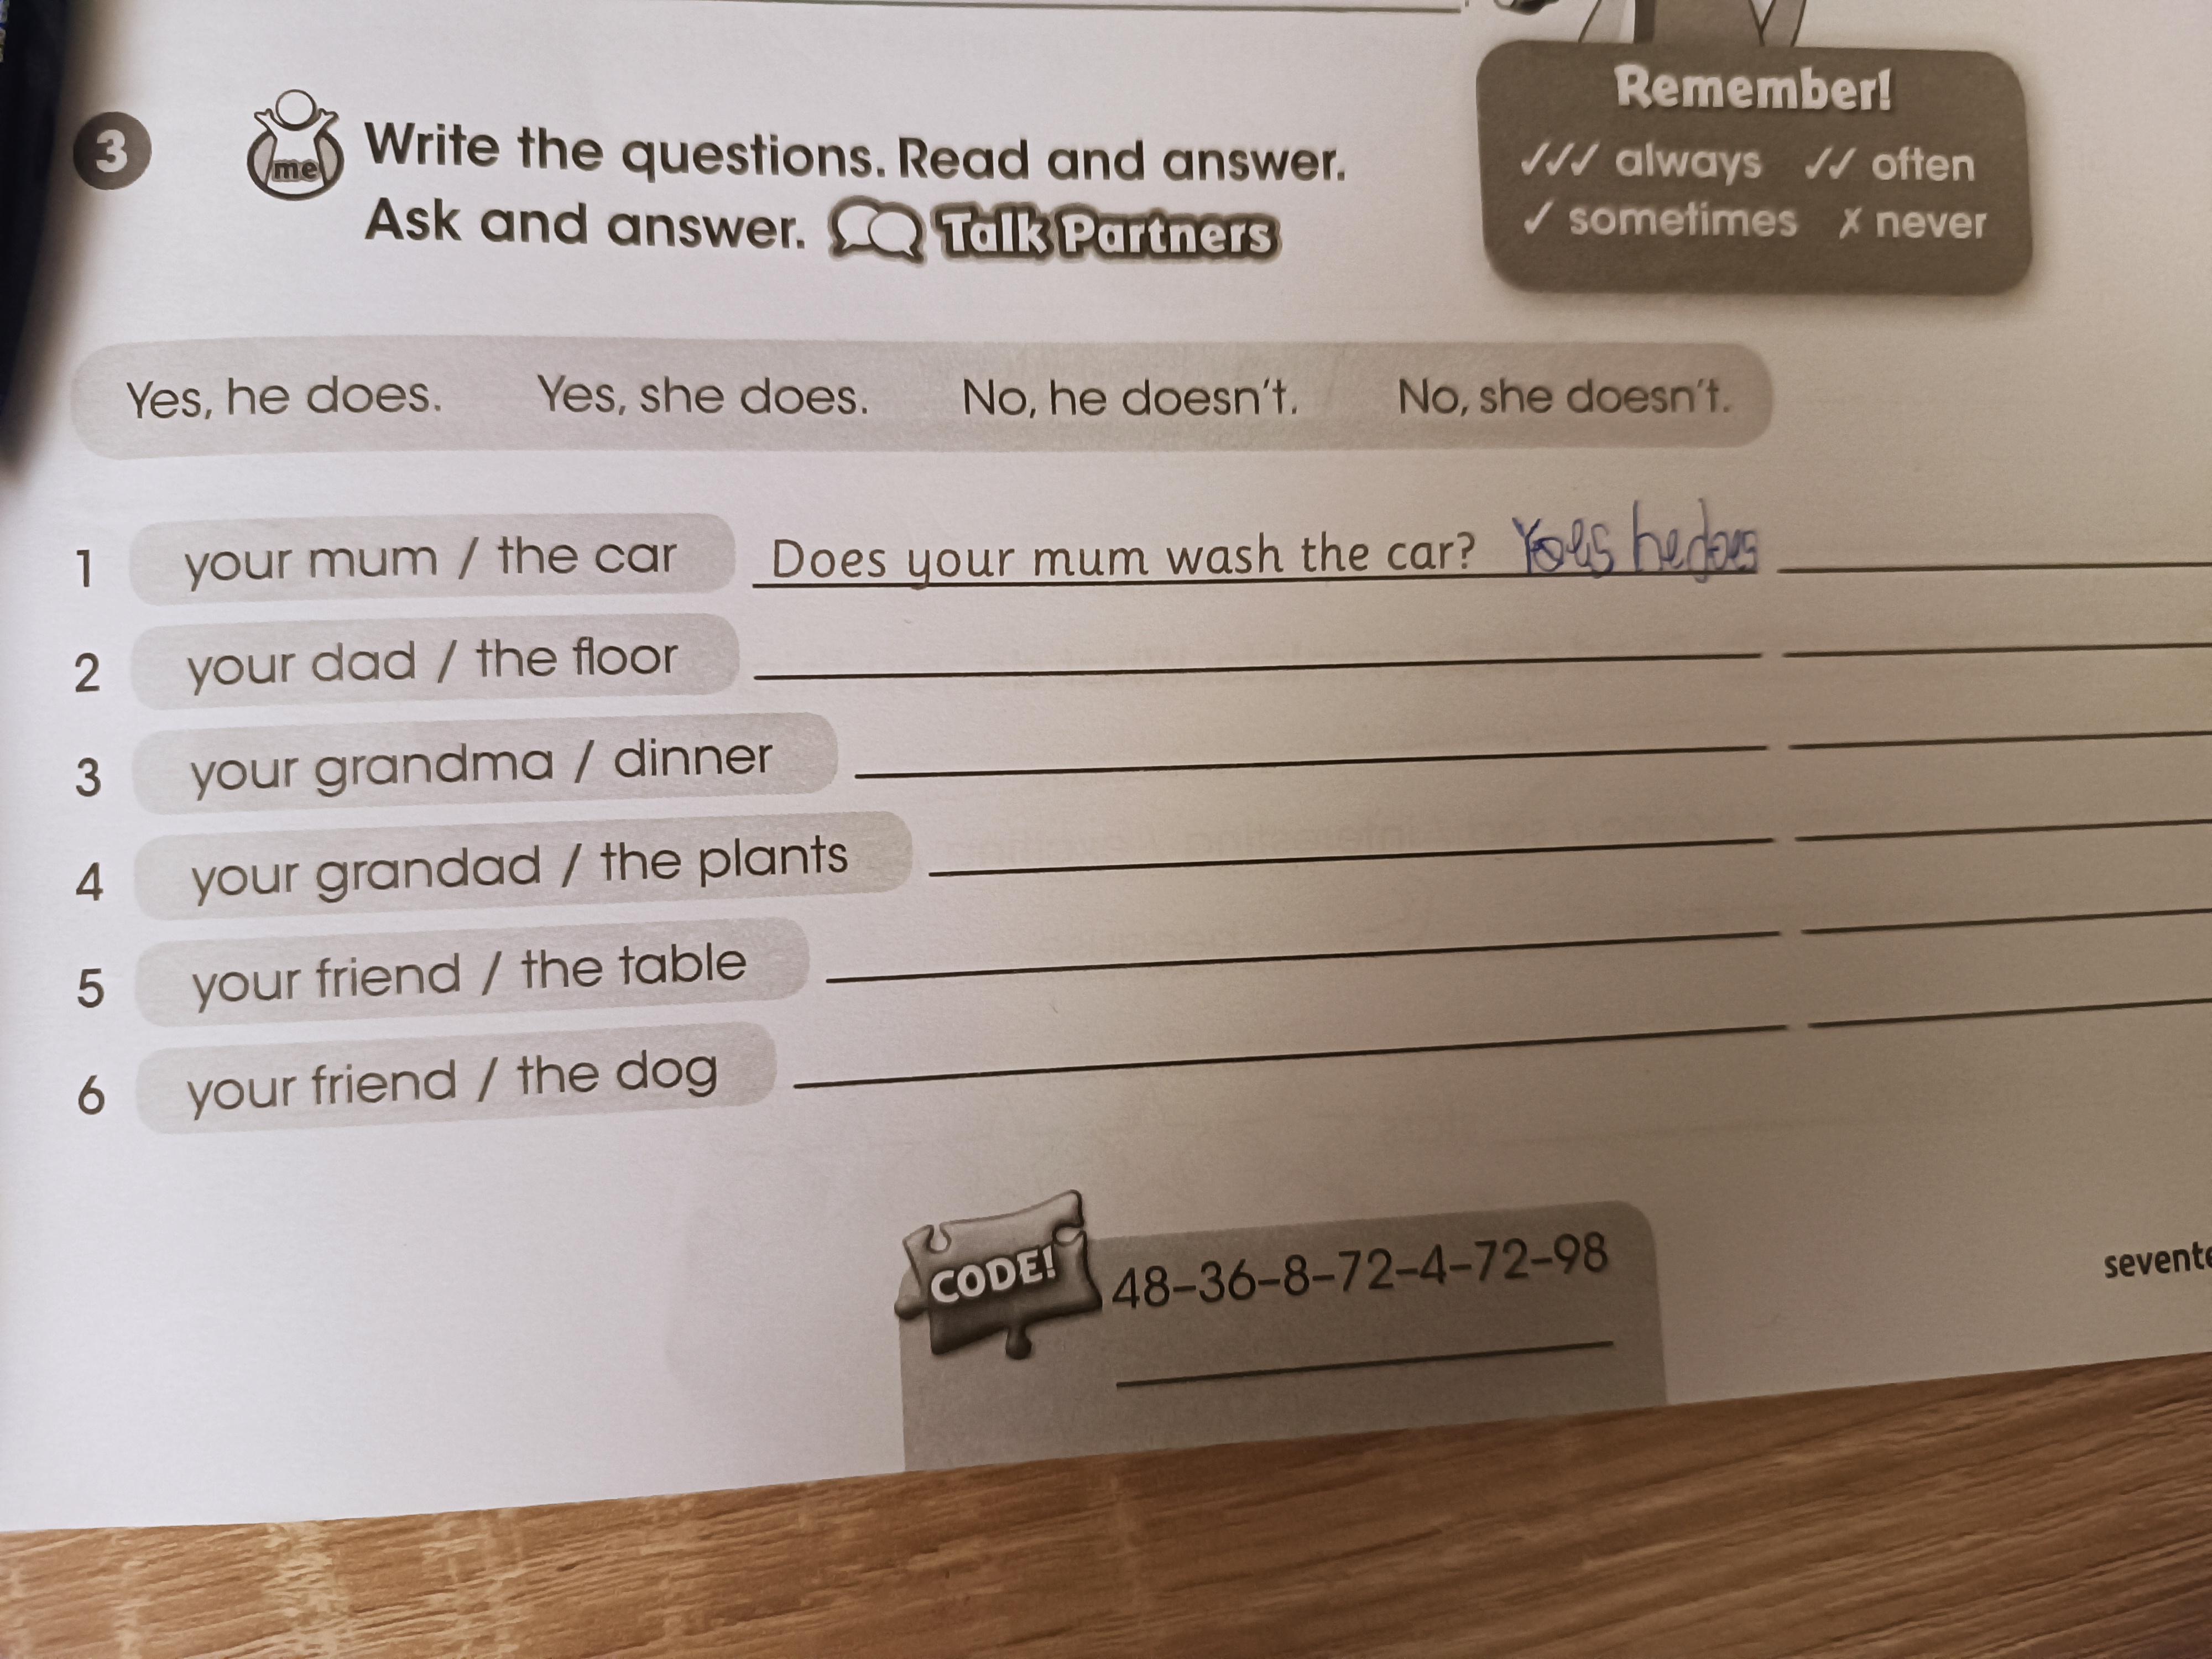 3 me Write the questions. Read and answer.
Ask and answer. Talk Partners
Remember!
✓✓✓ always ✓✓ often
✓ sometimes ✗ never
Yes, he does. Yes, she does. No, he doesn't. No, she doesn't.
1 your mum / the car Does your mum wash the car? he does
2 your dad / the floor
3 your grandma / dinner
4 your grandad / the plants
5 your friend / the table
6 your friend / the dog
CODE! 48–36–8–72–4–72–98
sevente